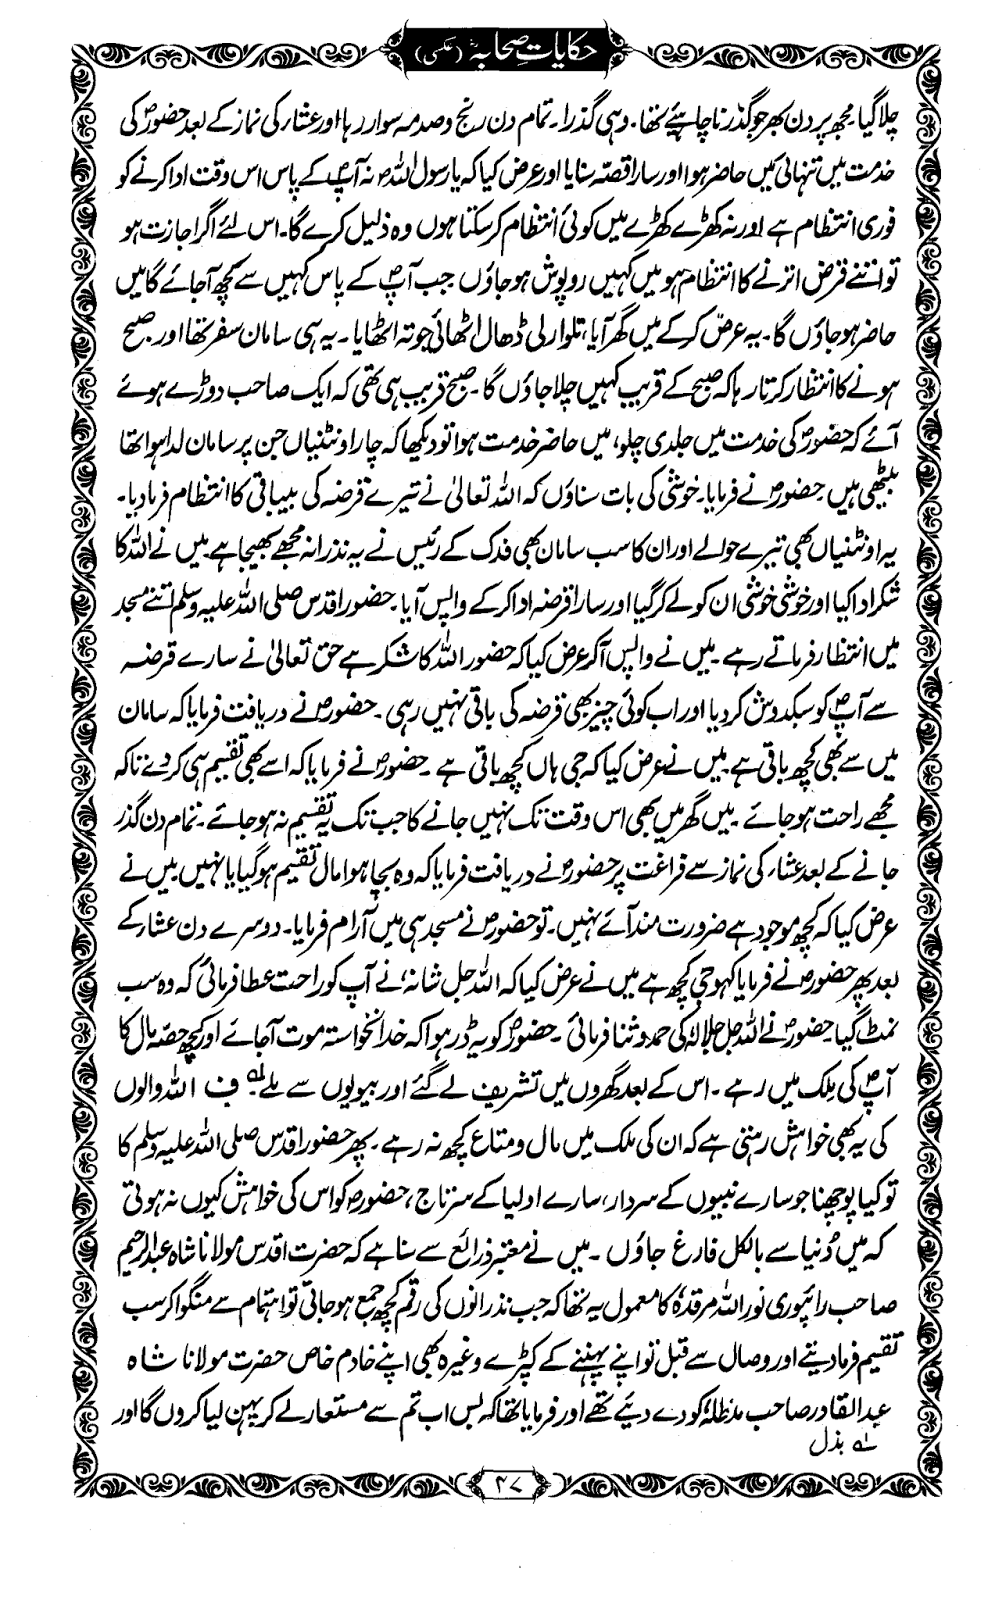 حکایاتِ صحابہؓ (عکسی)
چلا گیا مجھ پر دن بھر جو گذرنا چاہئے تھا۔ وہی گذرا۔ تمام دن رنج و صدمہ سوار رہا اور عشاء کی نماز کے بعد حضورؐ کی
خدمت میں تنہائی میں حاضر ہوا اور سارا قصّہ سنایا اور عرض کیا کہ یا رسول اللہؐ نہ آپؐ کے پاس اس وقت ادا کرنے کو
فوری انتظام ہے اور نہ کھڑے کھڑے میں کوئی انتظام کر سکتا ہوں وہ ذلیل کرے گا۔ اس لئے اگر اجازت ہو
تو اتنے قرض اترنے کا انتظام ہو میں کہیں روپوش ہو جاؤں جب آپؐ کے پاس کہیں سے کچھ آجائے گا میں
حاضر ہو جاؤں گا۔ یہ عرض کر کے میں گھر آیا، تلوار لی ڈھال اٹھائی جوتہ اٹھایا۔ یہ ہی سامان سفر تھا اور صبح
ہونے کا انتظار کرتا رہا کہ صبح کے قریب کہیں چلا جاؤں گا۔ صبح قریب ہی تھی کہ ایک صاحب دوڑے ہوئے
آئے کہ حضورؐ کی خدمت میں جلدی چلو، میں حاضر خدمت ہوا تو دیکھا کہ چار اونٹنیاں جن پر سامان لدا ہوا تھا
بیٹھی ہیں حضورؐ نے فرمایا۔ خوشی کی بات سناؤں کہ اللہ تعالیٰ نے تیرے قرضہ کی بیباقی کا انتظام فرما دیا۔
یہ اونٹنیاں بھی تیرے حوالے اور ان کا سب سامان بھی فدک کے رئیس نے یہ نذرانہ مجھے بھیجا ہے میں نے اللہ کا
شکر ادا کیا اور خوشی خوشی ان کو لے کر گیا اور سارا قرضہ ادا کر کے واپس آیا۔ حضور اقدس صلی اللہ علیہ وسلم اتنے مسجد
میں انتظار فرماتے رہے۔ میں نے واپس آکر عرض کیا کہ حضور اللہ کا شکر ہے حق تعالیٰ نے سارے قرضہ
سے آپؐ کو سبکدوش کر دیا اور اب کوئی چیز بھی قرضہ کی باقی نہیں رہی۔ حضورؐ نے دریافت فرمایا کہ سامان
میں سے بھی کچھ باقی ہے میں نے عرض کیا کہ جی ہاں کچھ باقی ہے۔ حضورؐ نے فرمایا کہ اسے بھی تقسیم ہی کر دے تاکہ
مجھے راحت ہو جائے میں گھر میں بھی اس وقت تک نہیں جانے کا جب تک یہ تقسیم نہ ہو جائے۔ تمام دن گذر
جانے کے بعد عشاء کی نماز سے فراغت پر حضورؐ نے دریافت فرمایا کہ وہ بچا ہوا مال تقسیم ہو گیا یا نہیں میں نے
عرض کیا کہ کچھ موجود ہے ضرورت مند آئے نہیں۔ تو حضورؐ نے مسجد ہی میں آرام فرمایا۔ دوسرے دن عشاء کے
بعد پھر حضورؐ نے فرمایا کہو جی کچھ ہے میں نے عرض کیا کہ اللہ جل شانہٗ نے آپ کو راحت عطا فرمائی کہ وہ سب
نمٹ گیا۔ حضورؐ نے اللہ جل جلالہٗ کی حمد و ثنا فرمائی۔ حضورؐ کو یہ ڈر ہوا کہ خدانخواستہ موت آجائے اور کچھ حصّہ مال کا
آپؐ کی مِلک میں رہے۔ اس کے بعد گھروں میں تشریف لے گئے اور بیویوں سے ملے لہ ف اللہ والوں
کی یہ بھی خواہش رہتی ہے کہ ان کی ملک میں مال و متاع کچھ نہ رہے۔ پھر حضور اقدس صلی اللہ علیہ وسلم کا
تو کیا پوچھنا جو سارے نبیوں کے سردار، سارے اولیا کے سرتاج، حضورؐ کو اس کی خواہش کیوں نہ ہوتی
کہ میں دُنیا سے بالکل فارغ جاؤں۔ میں نے معتبر ذرائع سے سنا ہے کہ حضرت اقدس مولانا شاہ عبدالرحیم
صاحب رائپوری نور اللہ مرقدہٗ کا معمول یہ تھا کہ جب نذرانوں کی رقم کچھ جمع ہو جاتی تو اہتمام سے منگوا کر سب
تقسیم فرما دیتے اور وصال سے قبل تو اپنے پہننے کے کپڑے وغیرہ بھی اپنے خادم خاص حضرت مولانا شاہ
عبدالقادر صاحب مدظلہٗ کو دے دیئے تھے اور فرمایا تھا کہ بس اب تم سے مستعار لے کر پہن لیا کروں گا اور
لہ بذل
۴۷